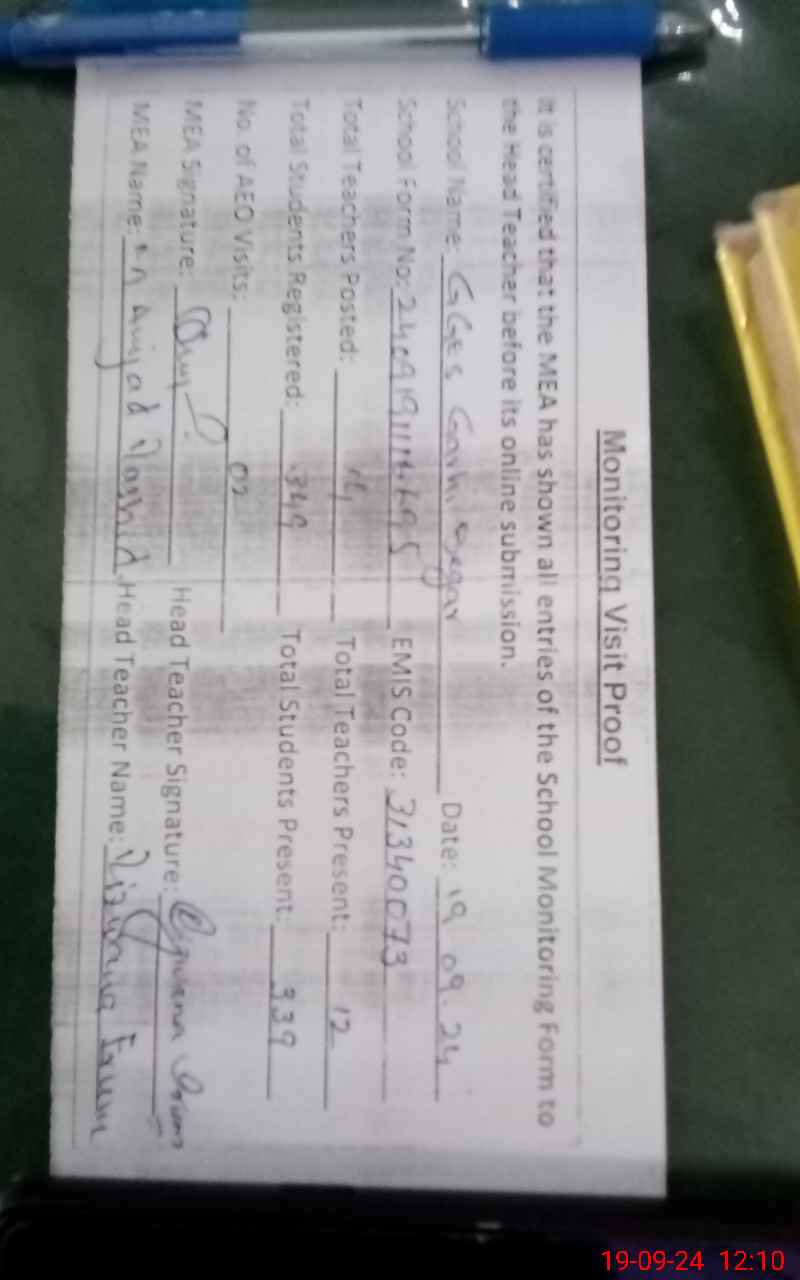 Monitoring Visit Proof
It is certified that the MEA has shown all entries of the School Monitoring Form to
the Head Teacher before its online submission.
School Name: GGES Garhi Date: 19 09. 24
School Form No: EMIS Code: 31340073
Total Teachers Posted: Total Teachers Present: 12
Total Students Registered: 349 Total Students Present: 339
No. of AEO Visits: 02
MEA Signature: Head Teacher Signature:
MEA Name: Amjad Rashid Head Teacher Name: Rizwana
19-09-24 12:10